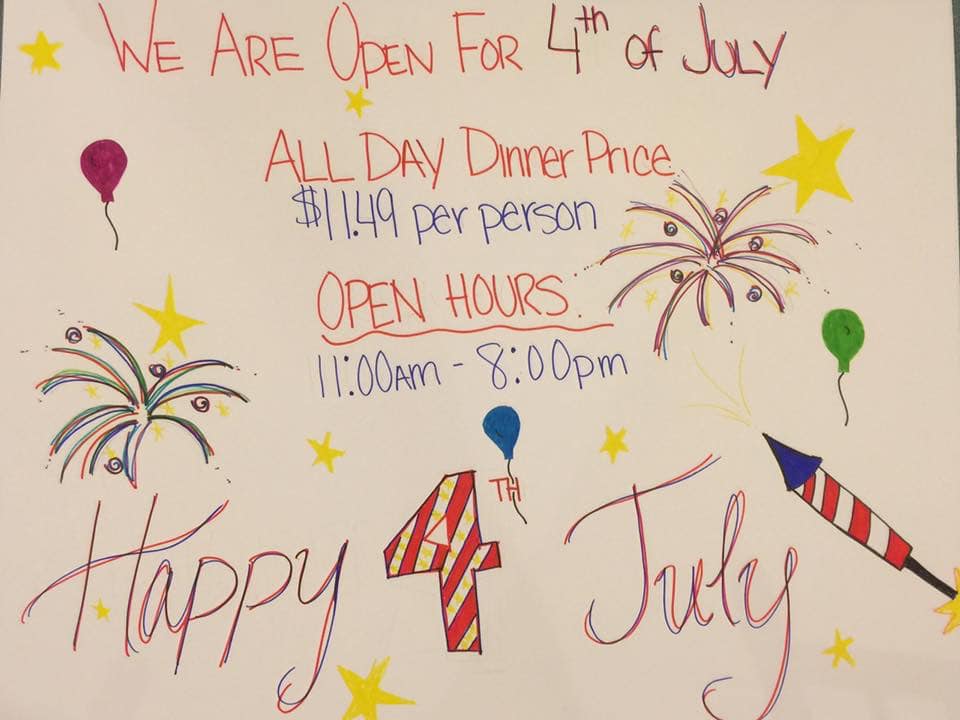 WE ARE OPEN FOR 4th of JULY
ALL DAY Dinner Price
$11.49 per person
OPEN HOURS:
11:00AM - 8:00pm
Happy 4TH July